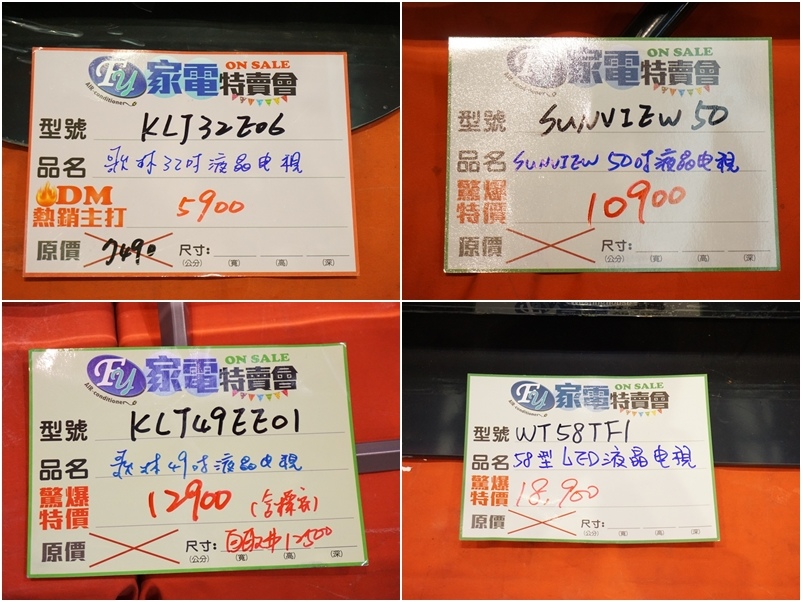 FU 家電 ON SALE 特賣會
AIR-conditioner
型號 KLT32E06
品名 歌林32吋液晶电視
DM
熱銷主打 5900
原價 7490 尺寸:
(公分) (寬) (高) (深)
FU 家電 ON SALE 特賣會
型號 SUNVIEW 50
品名 SUNVIEW 50吋液晶电視
驚爆
特價 10900
原價 尺寸:
(公分) (寬) (高) (深)
FU 家電 ON SALE 特賣會
AIR-conditioner
型號 KLT49EE01
品名 歌林49吋液晶电視
驚爆
特價 12900
原價 尺寸: 自取 12500
(公分) (寬) (高) (深)
FU 家電 ON SALE 特賣會
型號 WT58TF1
品名 58型LED液晶电視
驚爆
特價 18,900
原價 尺寸:
(公分) (寬) (高) (深)